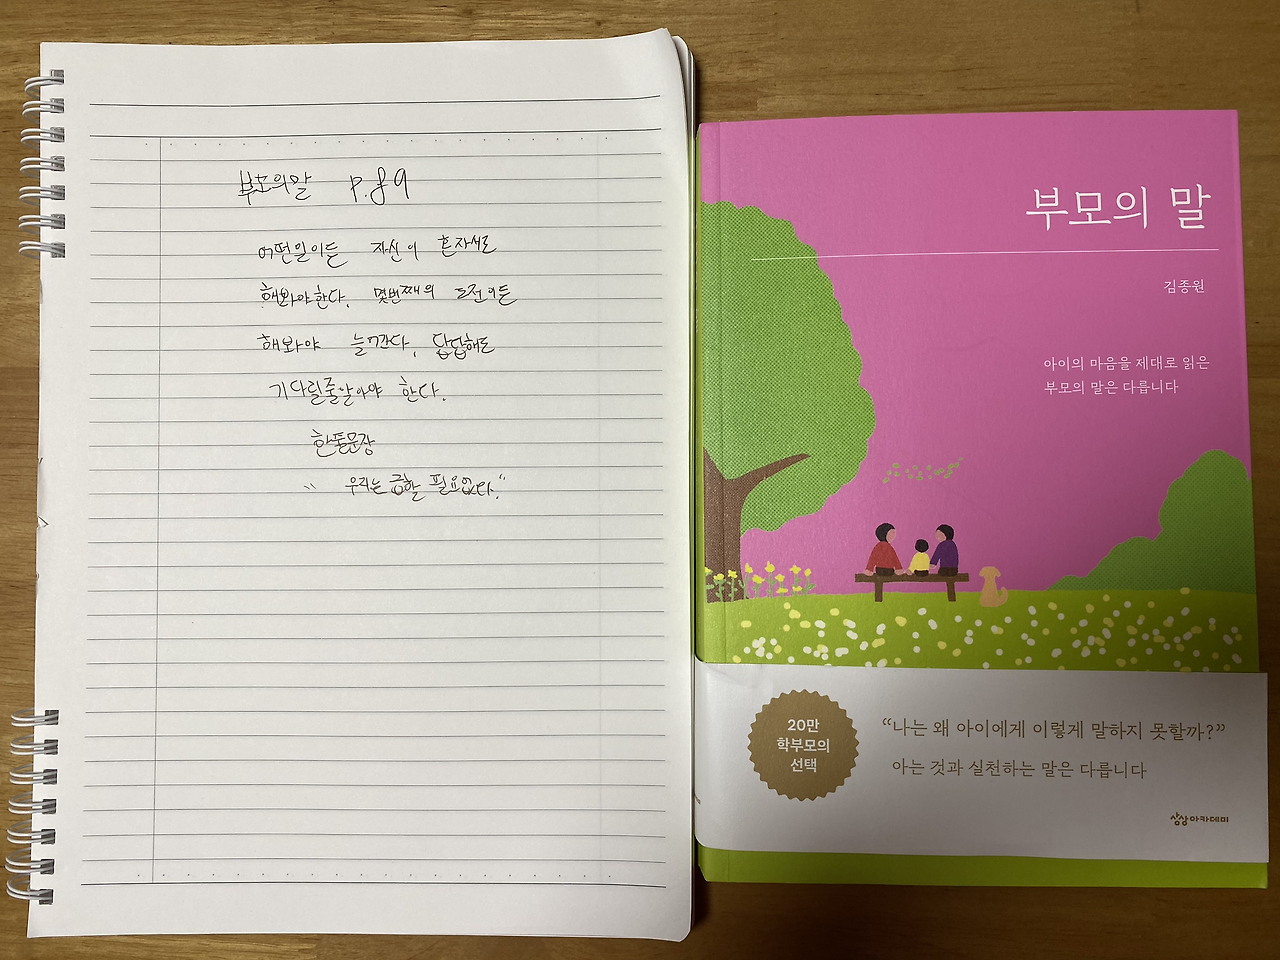 부모의말 p.89
어떤일이든 자신이 혼자서도
해봐야한다. 몇번째의 도전이든
해봐야 늘어간다. 답답해도
기다릴줄알아야 한다.
한줄문장
" 우리는 급할 필요없다."
부모의 말
김종원
아이의 마음을 제대로 읽은
부모의 말은 다릅니다
20만
학부모의
선택
“나는 왜 아이에게 이렇게 말하지 못할까?”
아는 것과 실천하는 말은 다릅니다
상상아카데미